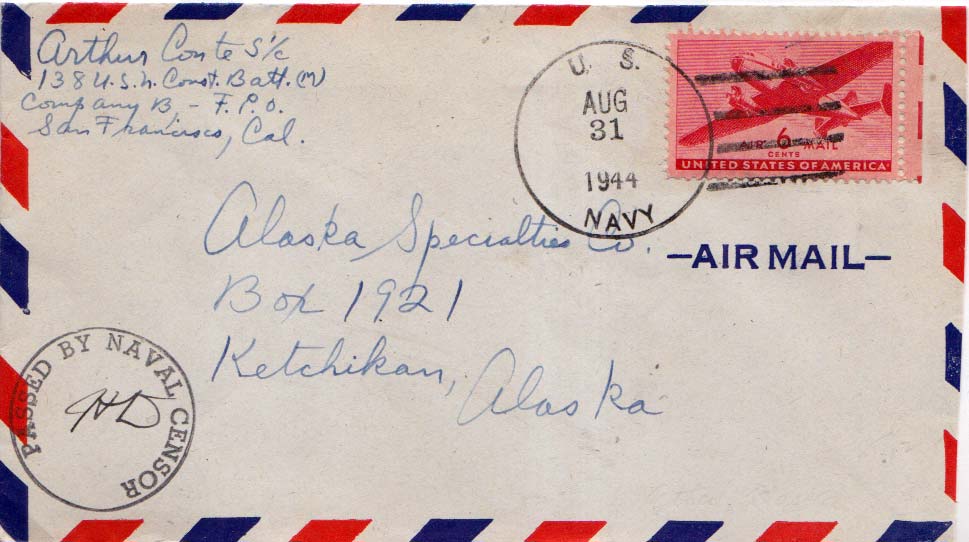 Arthur Conte S 1/c
138 U.S.N. Const. Batt. (M)
Company B - F.P.O.
San Francisco, Cal.
U. S.
AUG
31
1944
NAVY
AIR 6 MAIL
CENTS
UNITED STATES OF AMERICA
Alaska Specialties Co.
-AIR MAIL-
Box 1921
Ketchikan, Alaska
PASSED BY NAVAL CENSOR
HD